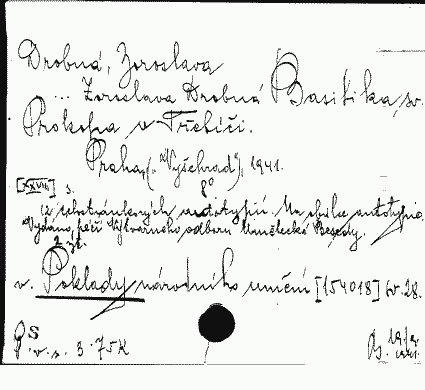 Drobná, Zoroslava
... Zoroslava Drobná Basilika sv.
Prokopa v Třebíči.
Praha, („Vyšehrad“), 1941.
[XXVIII] s. 8°
12 celostránkových autotypií. Na obálce autotypie.
Vydáno péčí Výtvarného odboru Umělecké Besedy.
2 výt.
v. Poklady národního umění [154018] sv. 28.
PS
P.v.s. 3.75K